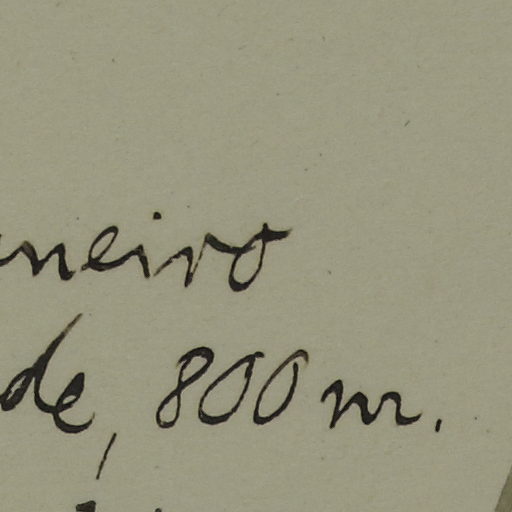 neiro
de, 800 m.